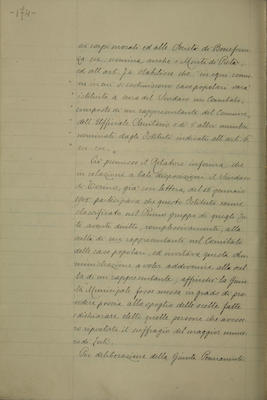 -174-
ai corpi morali ed alle Società di Beneficen
za ecc, nomina, anche i Monti di Pietà,
ed all'art. 7a stabilisce che "in ogni comu
ne in cui si costruiscono case popolari sarà
istituito a cura del Sindaco un Comitato,
composto di un rappresentante del Comune,
dell'Ufficiale Sanitario e di altri membri
nominati dagli Istituti indicati all'art.
ecc. ecc.
Ciò premesso il Relatore informa, che
in relazione a tali disposizioni il Sindaco
di Torino, già con lettera, del gennaio
partecipava che questo Istituto venne
classificato nel Primo gruppo di quegli Isti
aventi diritto, complessivamente, alla
scelta di un rappresentante nel Comitato
delle case popolari, ed invitava questa Am
ministrazione a voler addivenire alla scel
ta di un rappresentante, affinché la Giun
ta Municipale fosse messa in grado di pro
cedere poscia allo spoglio delle scelte fatte
e dichiarare elette quelle persone che avesse
ro riportato il suffragio del maggior nume
ro di Enti.
Per deliberazione della Giunta Permanente